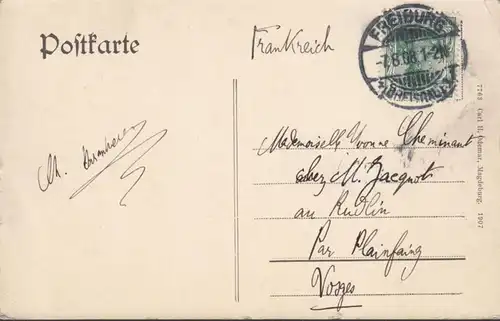 Postkarte
Frankreich
FREIBURG
-7.8.08.1-2N.
(BREISGAU)
Ch.
Mademoiselle Yvonne Cheminant
chez M. Jacquot
au Rudlin
Par Plainfaing
Vosges
7763 Carl H. Odemar, Magdeburg. 1907